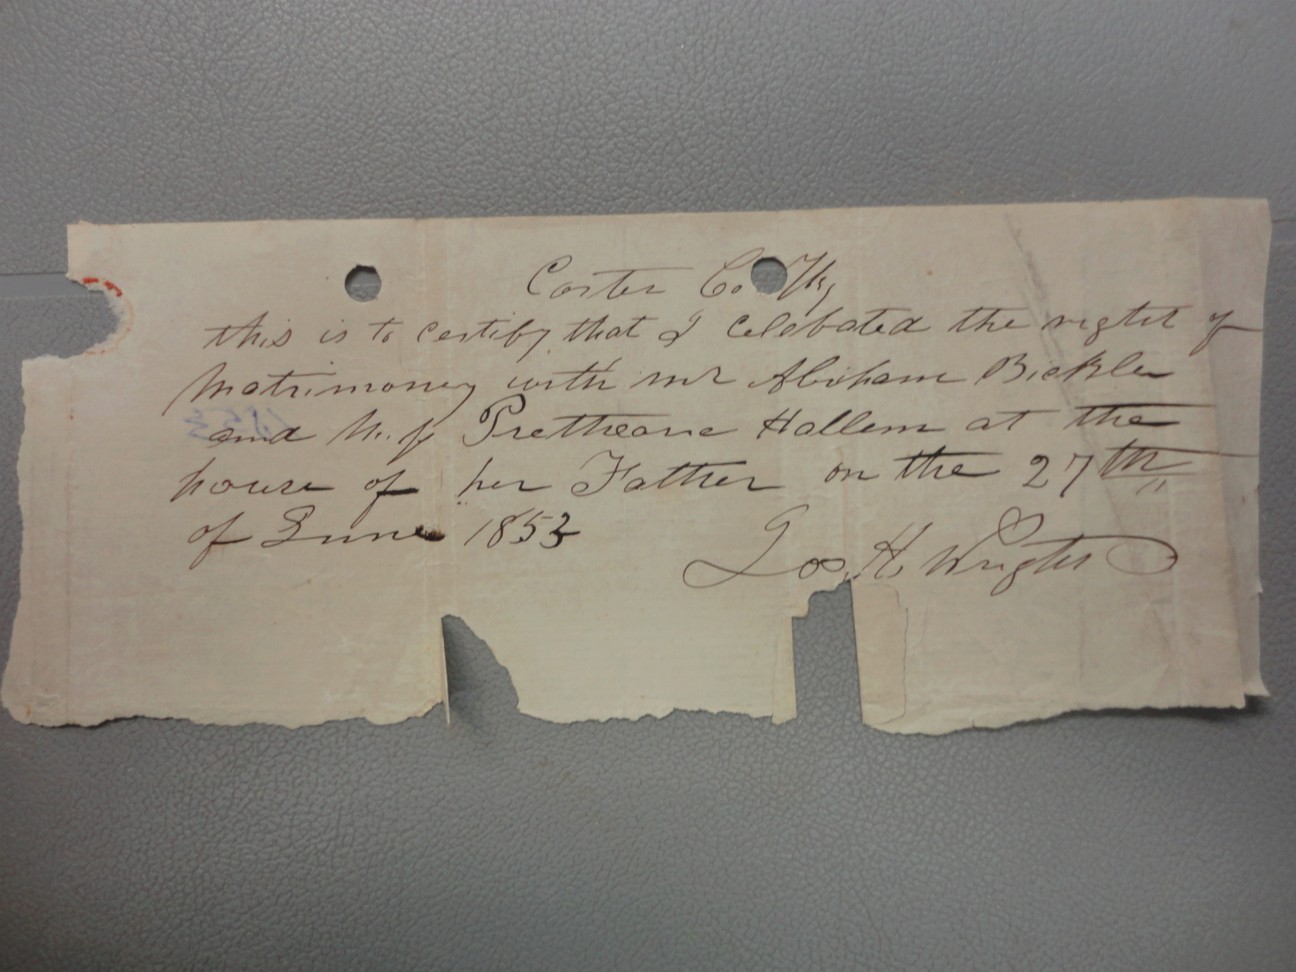 Carter Co Ky
this is to certify that I celebated the right of
Matrimony with mr Abiham Bickler
and Hallem at the
house of her Father on the 27th
of June 1853
Jos. H. Wright